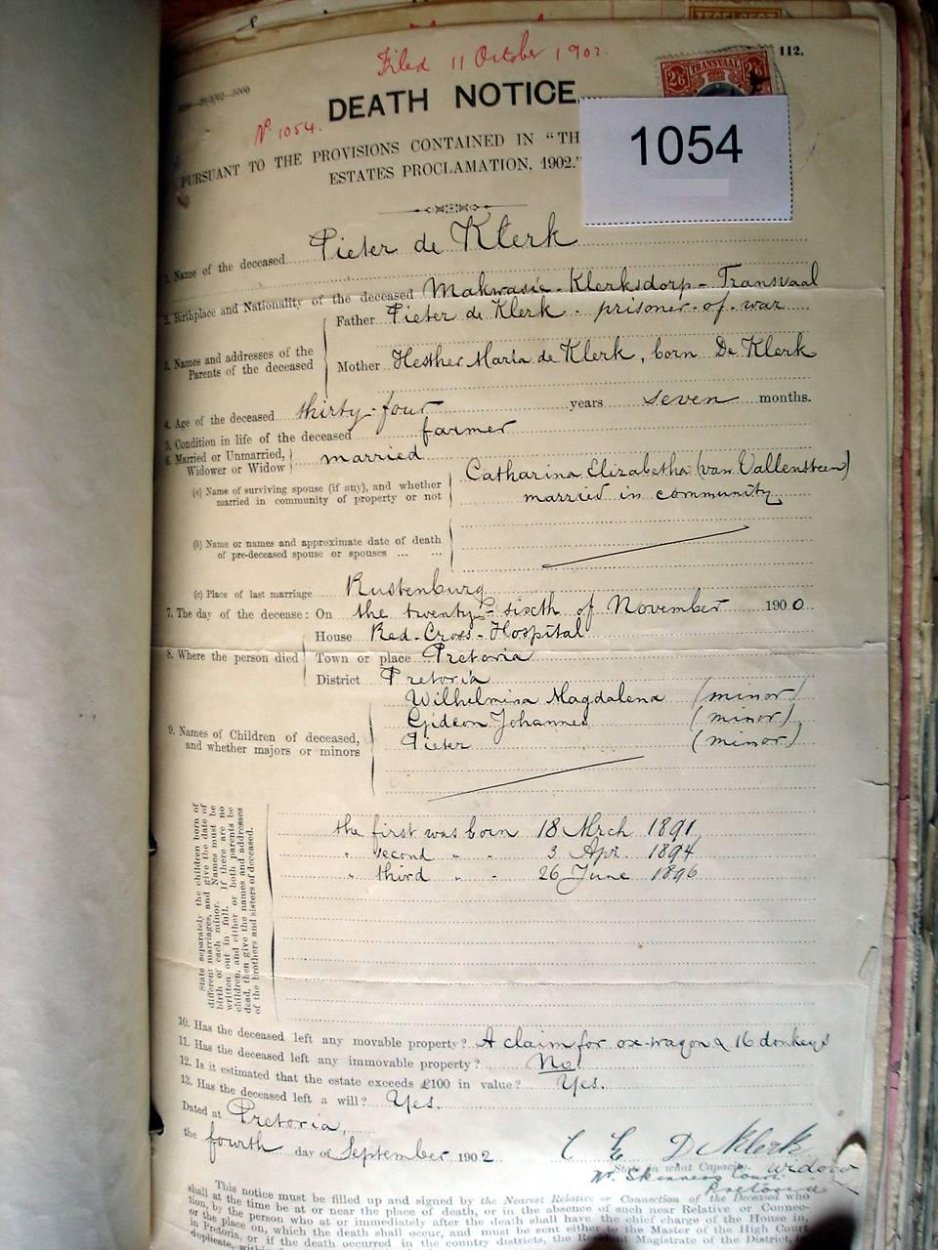 Filed 11 October 1902
112.
2/6 TRANSVAAL 2/6
DEATH NOTICE
No 1054.
1054
PURSUANT TO THE PROVISIONS CONTAINED IN "TH
ESTATES PROCLAMATION, 1902."
1. Name of the deceased Pieter de Klerk
2. Birthplace and Nationality of the deceased Makwasie - Klerksdorp - Transvaal
3. Names and addresses of the Parents of the deceased
Father Pieter de Klerk - prisoner-of-war
Mother Hesther Maria de Klerk, born De Klerk
4. Age of the deceased thirty-four years seven months.
5. Condition in life of the deceased farmer
6. Married or Unmarried, Widower or Widow married
(a) Name of surviving spouse (if any), and whether married in community of property or not
Catharina Elizabetha (van Vallensteen)
married in community
(b) Name or names and approximate date of death
of pre-deceased spouse or spouses ... ...
(c) Place of last marriage Rustenburg
7. The day of the decease: On the twenty-sixth of November 1900.
8. Where the person died
House Red-Cross-Hospital
Town or place Pretoria
District Pretoria
9. Names of Children of deceased,
and whether majors or minors
Wilhelmina Magdalena (minor)
Gideon Johannes (minor)
Pieter (minor)
State separately the children born of
different marriages, and give the date of
birth of each minor. Names must be
written out in full. If there are no
children, and either or both parents be
dead, then give the names and addresses
of the brothers and sisters of deceased.
the first was born 18 Mrch 1891
" second " " 3 Apr. 1894
" third " " 26 June 1896
10. Has the deceased left any movable property? A claim for ox-wagon & 16 donkeys
11. Has the deceased left any immovable property? No!
12. Is it estimated that the estate exceeds £100 in value? Yes.
13. Has the deceased left a will? Yes.
Dated at Pretoria,
the fourth day of September 1902
C E De Klerk
State in what Capacity. widow
Skinners Court
Pretoria
This notice must be filled up and signed by the Nearest Relative or Connection of the Deceased who
shall at the time be at or near the place of death, or in the absence of such near Relative or Connec-
tion, by the person who at or immediately after the death shall have the chief charge of the House in,
or the place on, which the death shall occur, and must be sent either to the Master of the High Court
in Pretoria, or if the death occurred in the country districts, the Resident Magistrate of the District, in
duplicate,